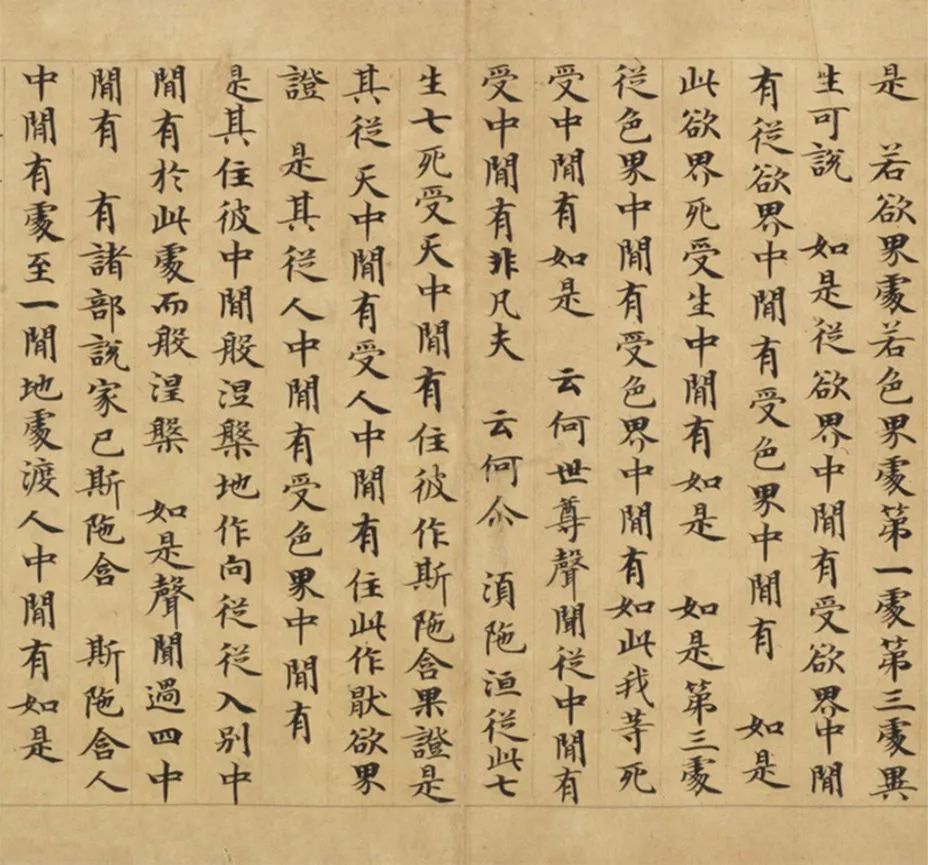 是 若欲界處若色界處第一處第三處異
生可說 如是從欲界中閒有受欲界中閒
有從欲界中閒有受色界中閒有 如是
此欲界死受生中閒有如是 如是第三處
從色界中閒有受色界中閒有如此我等死
受中閒有如是 云何世尊聲聞從中閒有
受中閒有非凡夫 云何尒 須陁洹從此七
生七死受天中閒有住彼作斯陁含果證是
其從天中閒有受人中閒有住此作猒欲界
證 是其從人中閒有受色界中閒有
是其住彼中閒般涅槃地作向從從入別中
閒有於此處而般涅槃 如是聲聞過四中
閒有 有諸部說家已斯陁含 斯陁含人
中閒有處至一閒地處渡人中閒有如是